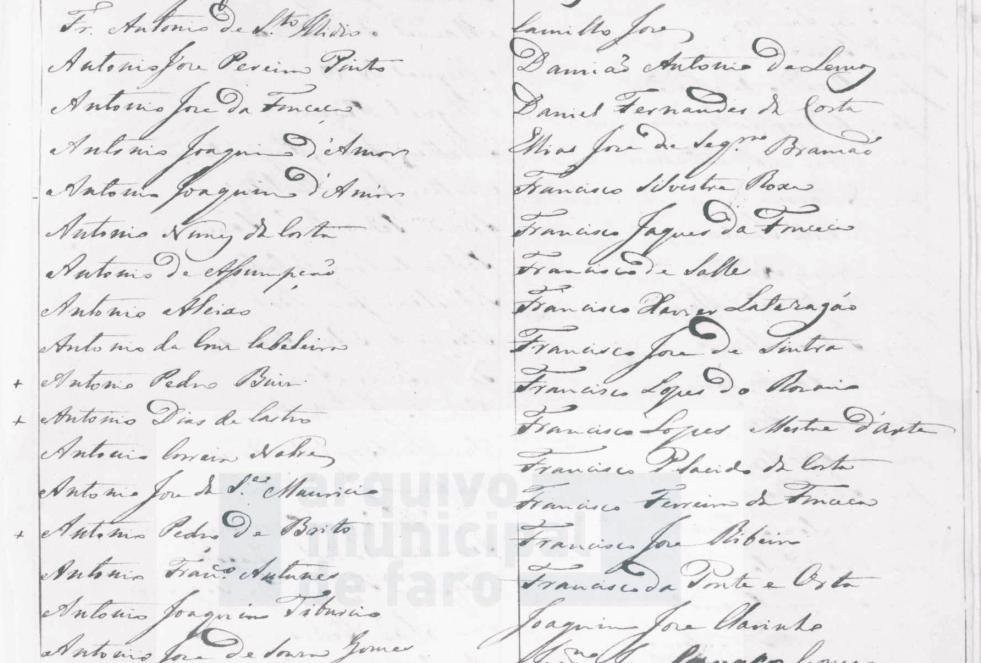 Fr. Antonio de S.to
Antonio Jose Pereira Pinto
Antonio Jose da Fonceca
Antonio Joaquim d'Amor
Antonio Joaquim d'Amor
Antonio Nunez da Costa
Antonio de Assumpção
Antonio Aleixo
Antonio da Cruz
+ Antonio Pedro
+ Antonio Dias de Castro
Antonio Correia
Antonio Jose de S.ta Mauricio
+ Antonio Pedro de Brito
Antonio Fran.co Antunes
Antonio Joaquim Tiburcio
Antonio Jose de Souza Gomes
Camillo Jose
Damião Antonio de Lemos
Daniel Fernandes da Costa
Elias Jose de Brandão
Francisco Silvestre Roxa
Francisco Jaques da Fonceca
Francisco de Salle
Francisco Xavier
Francisco Jose de Sintra
Francisco Lopes do Rosario
Francisco Lopes Mestre d'arte
Francisco Placido da Costa
Francisco Ferreira da Fonceca
Francisco Jose Ribeiro
Francisco da Ponte e Costa
Joaquim Jose Clarinha
arquivo
municipal
de faro